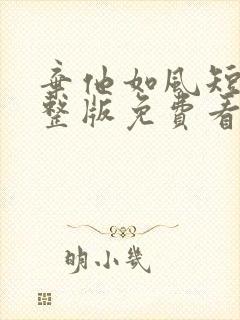 弃他如风短
整版免费看
明小几